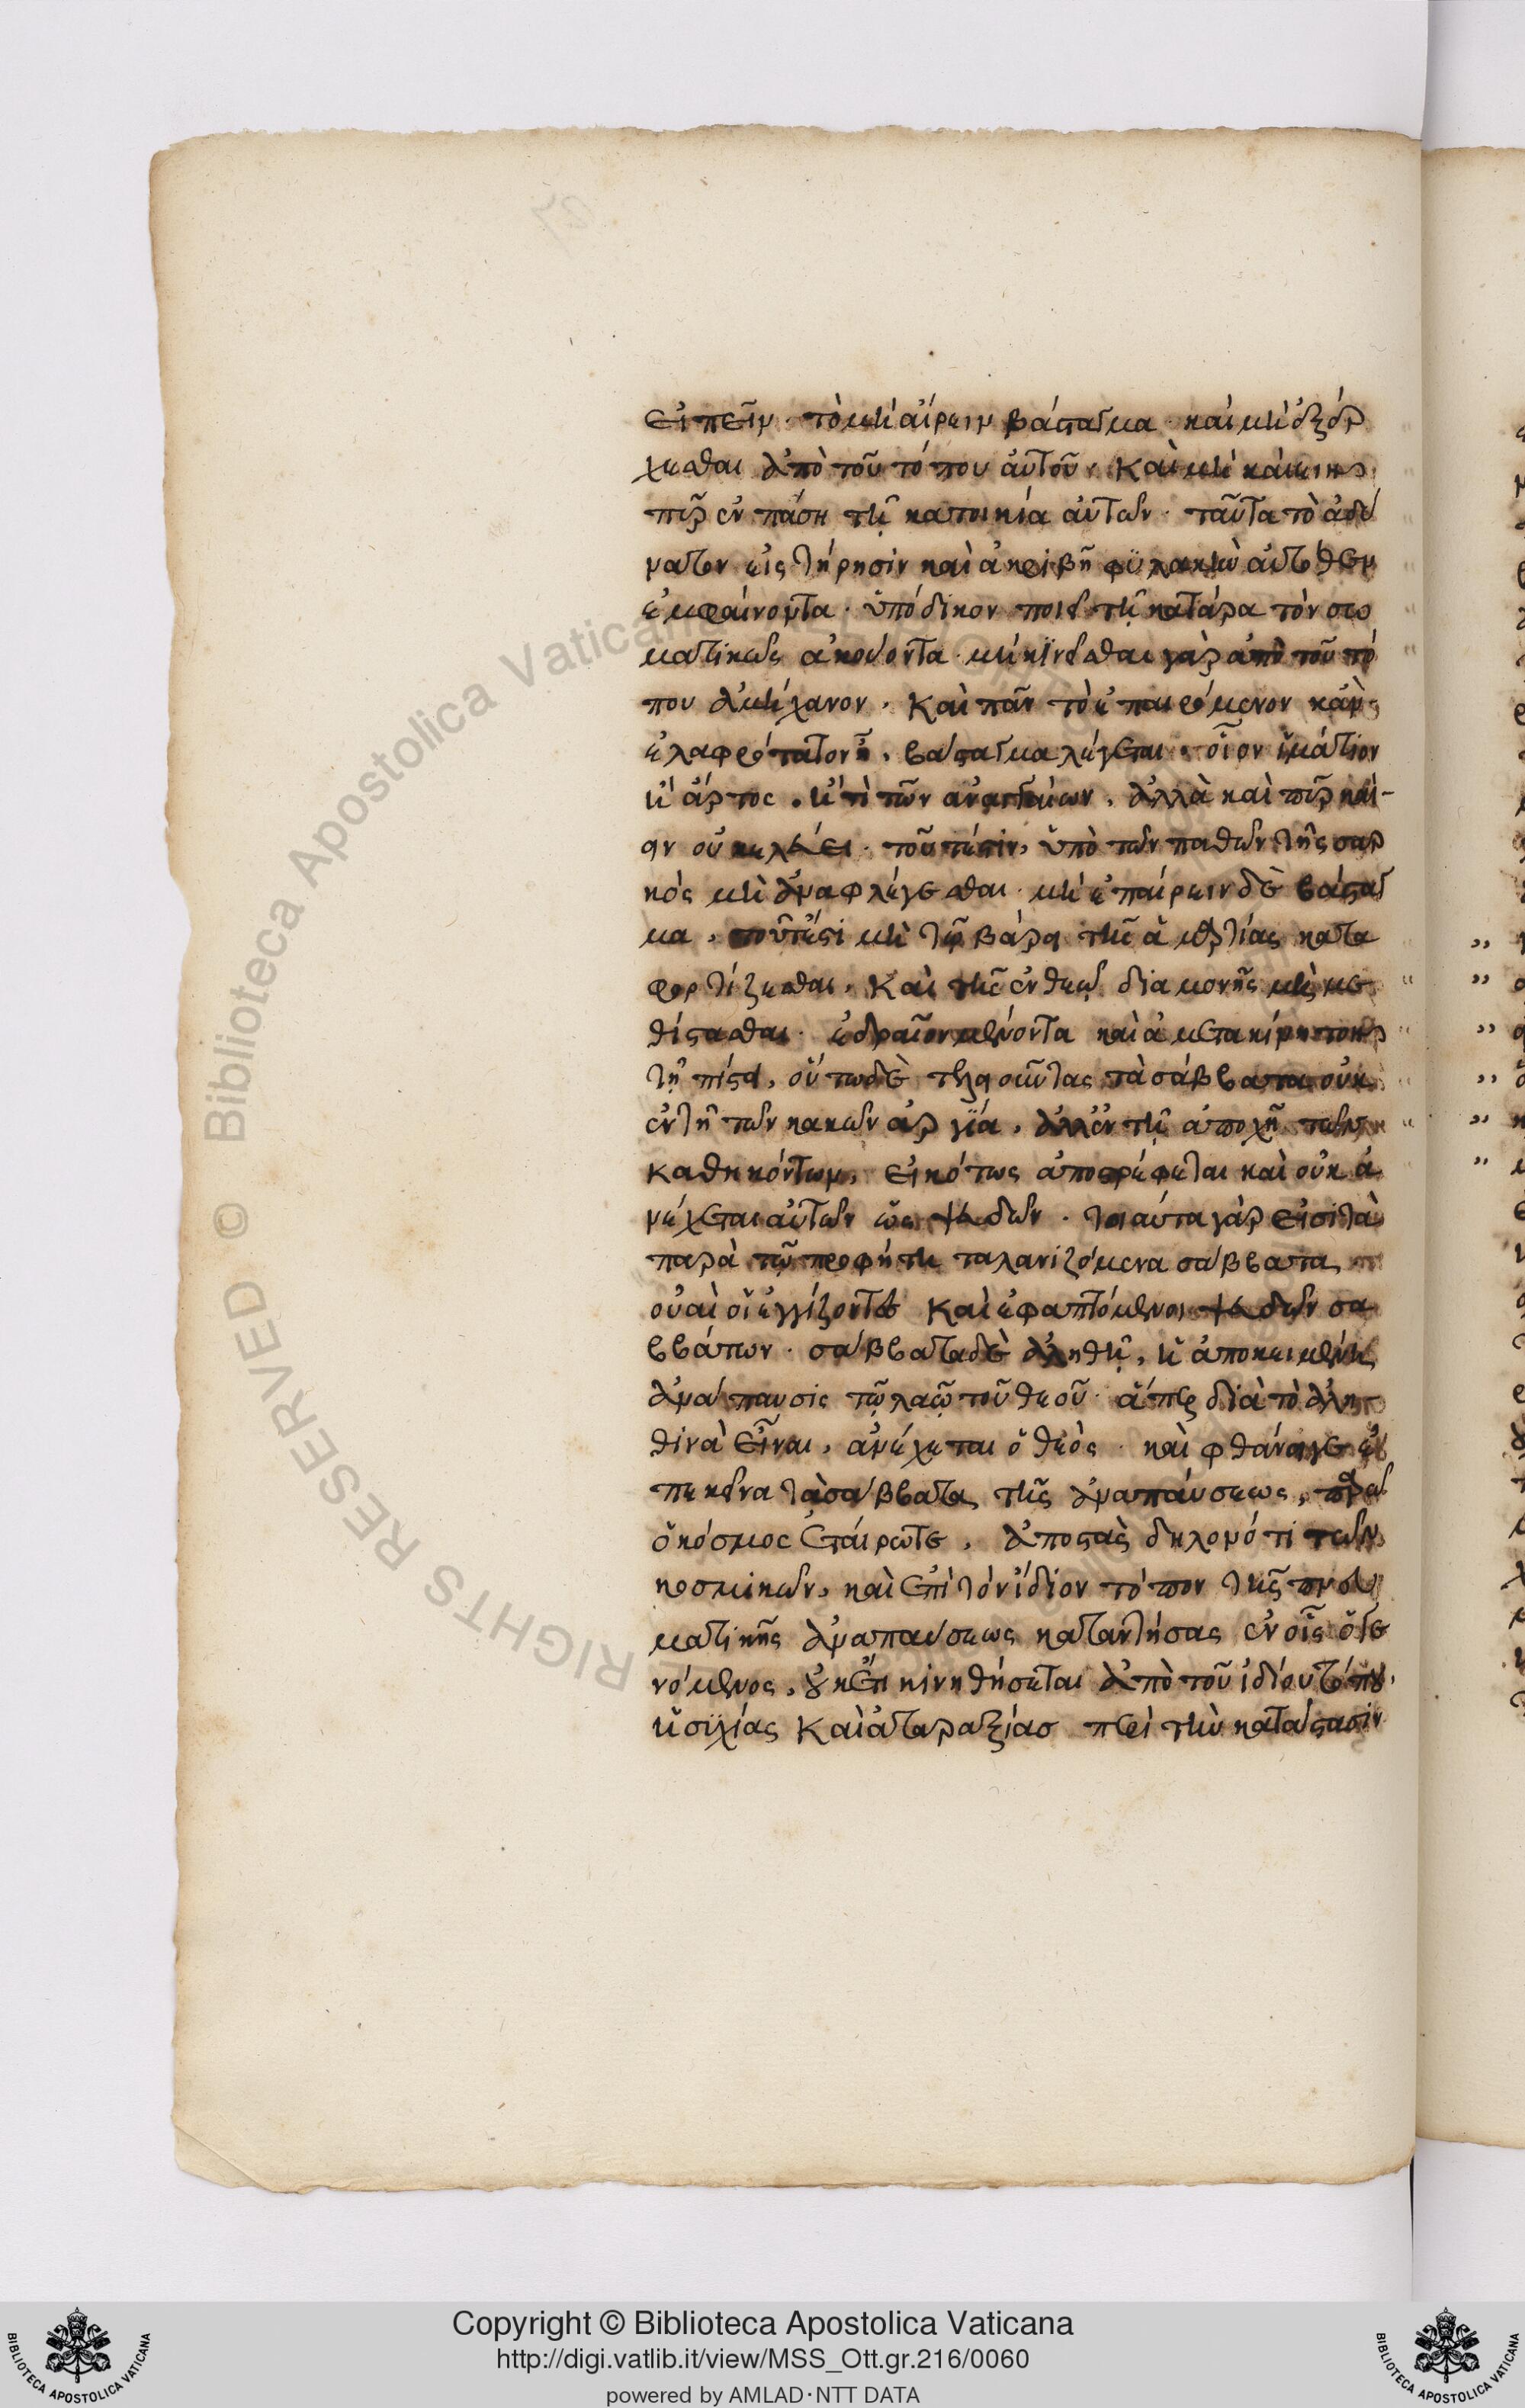 εἰπεῖν· τὸ μὴ αἴρειν βάσταγμα· καὶ μὴ ἐξέρ
χεσθαι ἀπὸ τοῦ τόπου αὐτοῦ, καὶ μὴ καίειν
πῦρ ἐν πάσῃ τῇ κατοικία αὐτῶν· ταῦτα τὸ ἀδύ
νατον εἰς τήρησιν καὶ ἀκριβῆ φϋλακὴν αὐτόθεν
ἐμφαίνοντα· ὑπόδικον ποιεῖ τῇ κατάρα τὸν σω
ματικῶς ἀκούοντα· μὴ κϊνεῖσθαι γὰρ ἀπὸ τοῦ τό
που ἀμήχανον, καὶ πᾶν τὸ ἐπαιρόμενον κἂν
ἐλαφρότατον ἦ, βάσταγμα λέγεται· οἷον ἱμάτιον
ἢ ἄρτος, ἤ τι τῶν ἀναγκαίων, ἀλλὰ καὶ πῦρ καί
ειν οὐ κελεύει· τουτέστιν, ὑπὸ τῶν παθῶν τῆς σαρ
κὸς μὴ ἀναφλέγεσθαι· μὴ ἐπαίρειν δὲ βάσταγ
μα, τουτέστι μὴ τῷ βάρει τῆς ἁμαρτίας κατα
φορτίζεσθαι, καὶ τῆς ἐν θεῷ διαμονῆς μὴ με
θίστασθαι· ἑδραῖον μένοντα καὶ ἀμετακίνητον
τῇ πίστει, οὕτω δὲ τηροῦντας τὰ σάββατα οὐκ
ἐν τῇ τῶν κακῶν ἀργϊία, ἀλλ' ἐν τῇ ἀποχῇ τῶν
καθηκόντων, εἰκότως ἀποστρέφεται καὶ οὐκ ἀ
νέχεται αὐτῶν ὡς ψευδῶν· τοιαύτα γάρ εἰσι τὰ
παρὰ τῷ προφήτη ταλανιζόμενα σάββατα
οὐαὶ οἱ ἐγγίζοντες καὶ ἐφαπτόμενοι ψευδῶν σα
ββάτων· σάββατα δὲ ἀληθῆ, ἡ ἀποκειμένη
ἀνάπαυσις τῷ λαῷ τοῦ θεοῦ· ἅπερ διὰ τὸ ἀλη
θινὰ εἶναι, ἀνέχεται ὁ θεός· καὶ φθάνει γε ἐ
πεκεῖνα τὰ σάββατα τῆς ἀναπαύσεως,
ὁ κόσμος ἐσταύρωται, ἀποστὰς δηλονότι τῶν
κοσμικῶν, καὶ ἐπὶ τὸν ἴδιον τόπον τῆς πνευ
ματικῆς ἀναπαύσεως καταντήσας ἐν οἷς ὁ γε
νόμενος, οὐκέτι κινηθήσεται ἀπὸ τοῦ ἰδίου τόπου,
ἡσϊχίας καὶ ἀταραξίας περὶ τὴν κατάστασιν